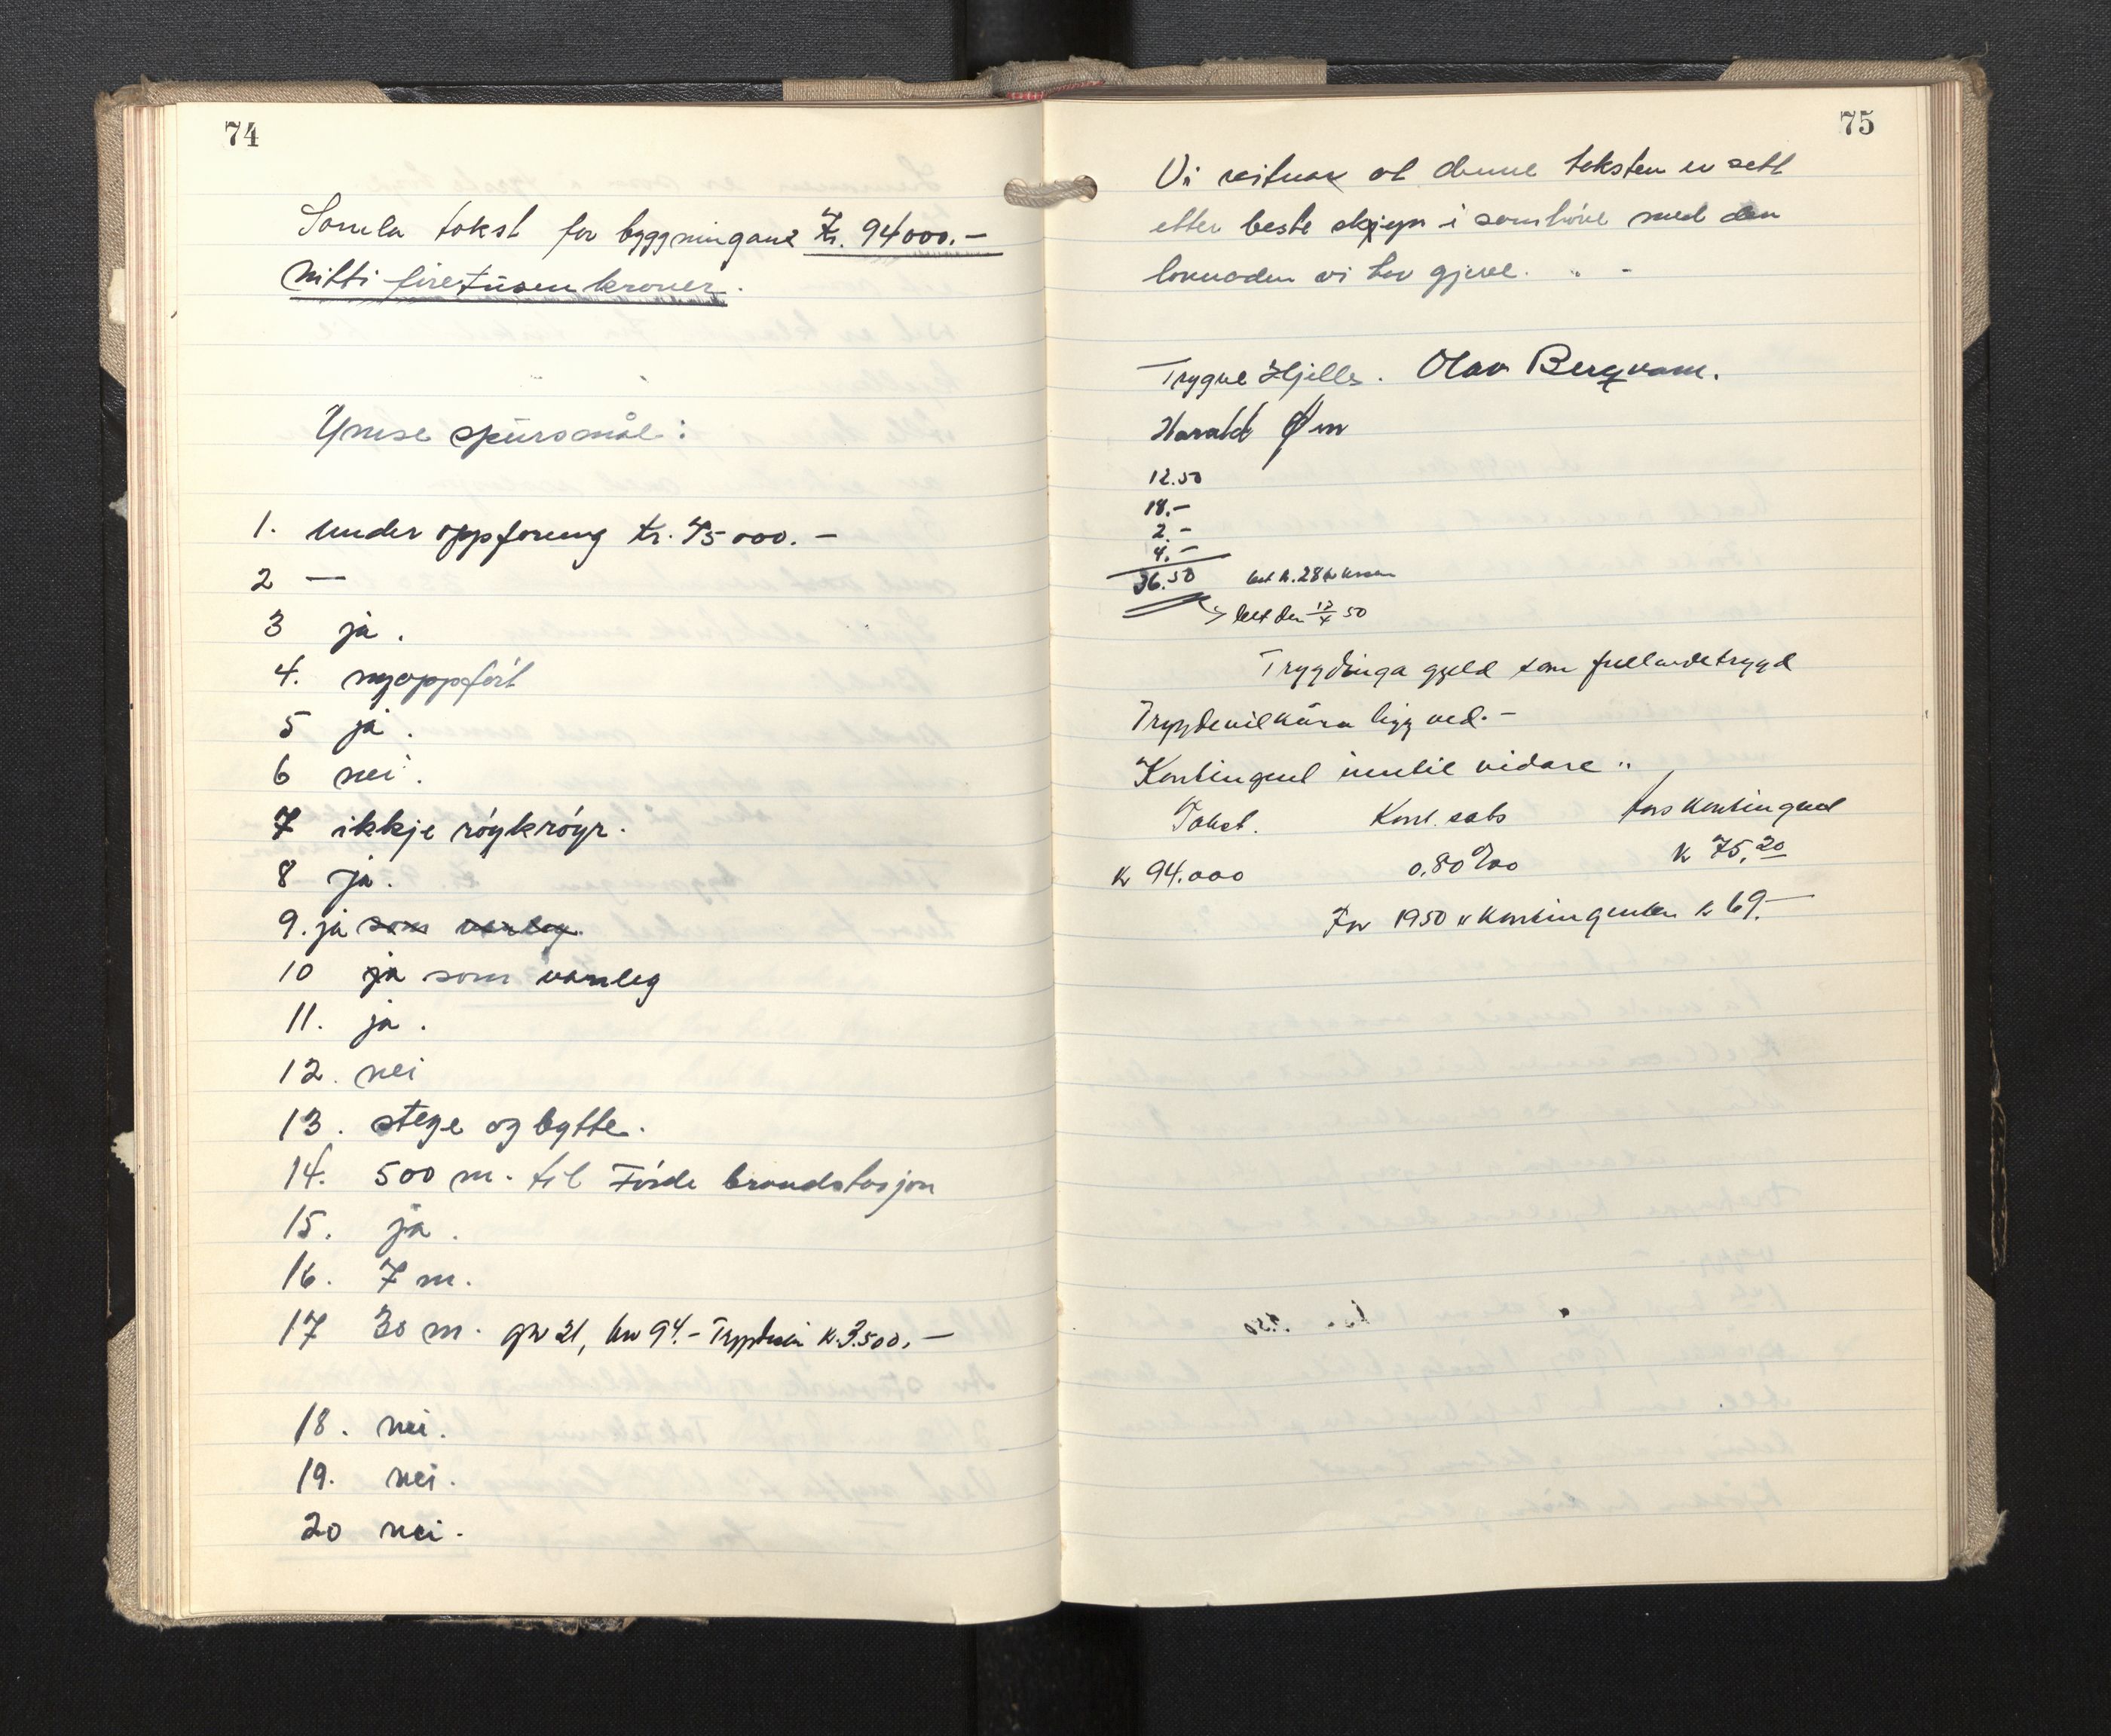 74
Samla takst for byggningane kr. 94000.-
Nitti firetusen kroner.
Ymse spursmål:
1. under oppføring kr. 45000. -
2 —
3 ja.
4. nyoppført
5 ja.
6 nei.
7 ikkje røykrøyr.
8 ja.
9. ja som vanleg.
10 ja som vanleg
11. ja.
12. nei
13. stege og bytte.
14. 500 m. til Førde brandstasjon
15. ja.
16. 7 m.
17 30 m. gnr 21, bnr 94.- kr. 3.500.-
18. nei.
19. nei.
20 nei.
75
Vi vitnar at denne taksten er sett
etter beste skjøyn i samhøve med den
lovnaden vi hev gjeve.
Trygve Hjelle. Olav Bergvam.
Harald Øen
12.50
18.-
2.-
4.-
36.50 bet. kr. 28
bet den 12/4 50
Trygdinga gjeld som fullverdetrygd
Trygdevilkåra ligg ved.-
Kontingent inntil vidare
Takst. Kont. sats Års kontingent
kr 94.000 0,80 ‰ kr 75,20
For 1950 er kontingenten kr 69.-